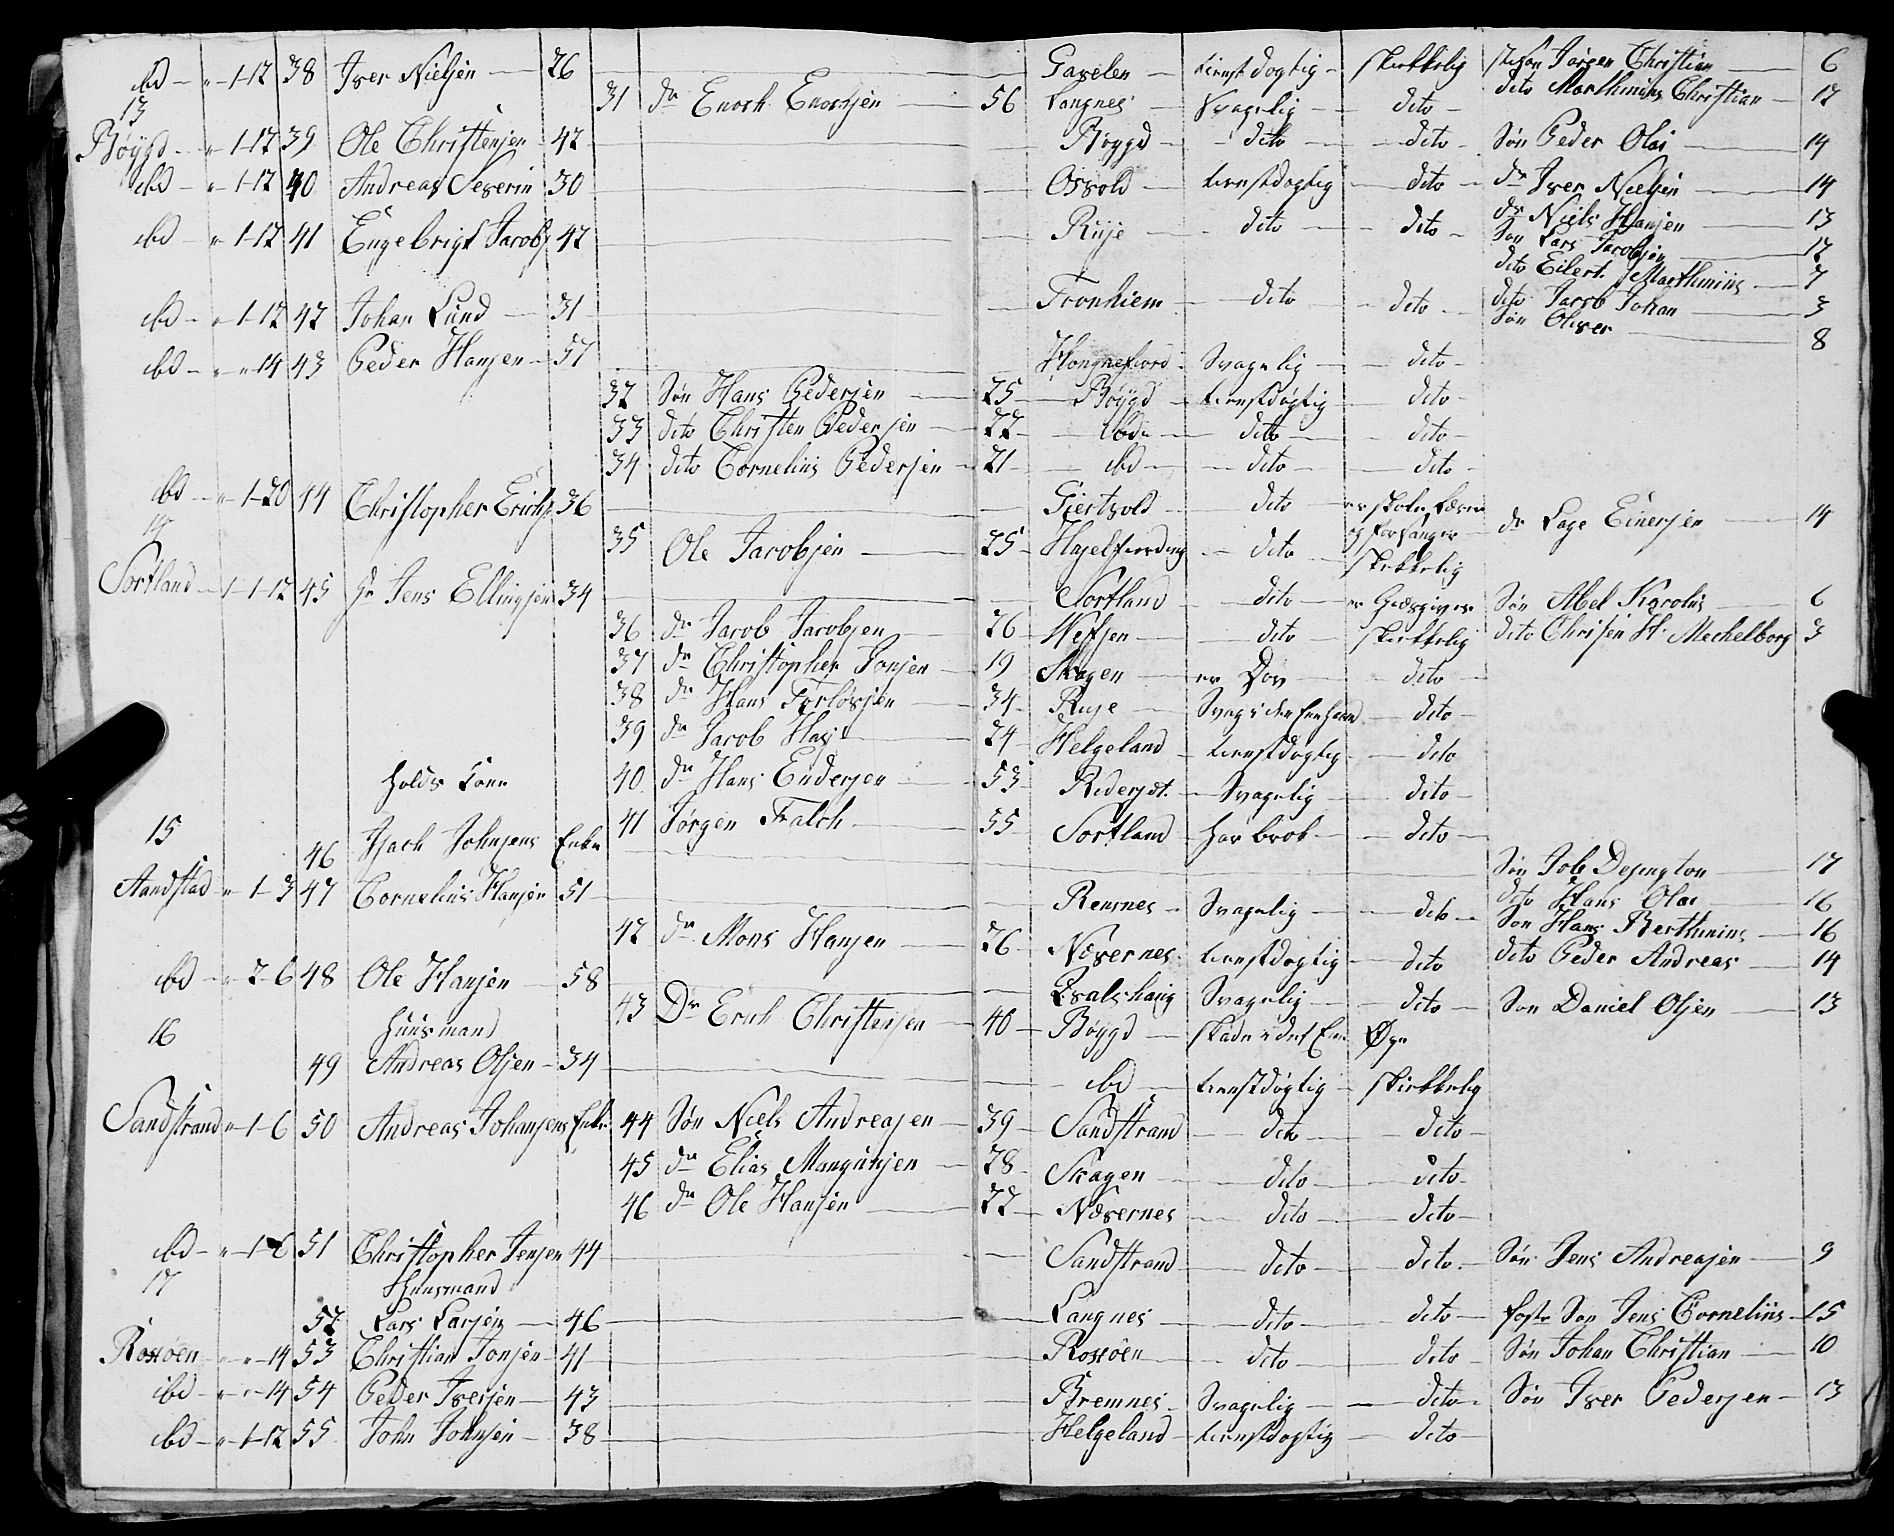 ibd - " 1-12 38 Iver Nielsen 26 Gavelen tienstdygtig skikkelig Stifsøn Jørgen Christian 6
13 31 dr Enoch Enochsen 56 Langnes Svagelig dito dito Marthinus Christian 12
Bøygd " 1-12 39 Ole Christensen 42 Bøygd dito dito Søn Peder Olai 14
ibd - " 1-12 40 Andreas Severin 30 Osvold tienstdygtig dito dr Iver Nielsen 14
dr Niels Hansen 13
ibd - " 1-12 41 Engebrigt Jacobs 42 Ruje dito dito Søn Lars Jacobsen 12
dito Eilert Marthinus 7
dito Jacob Johan 3
ibd - " 1-12 42 Johan Lund 31 Tronhiem dito dito Søn Oliver 8
ibd - " " 14 43 Peder Hansen 57 Hongnefiord Svagelig dito
32 Søn Hans Pedersen 25 Bøygd tienstdygtig dito
33 dito Christen Pedersen 22 ibd dito dito
34 dito Cornelius Pedersen 21 ibd dito dito
ibd - " 1-20 44 Christopher Erichs 36 Giertsvold dito er skole Lærer og forsanger dr Lage Einersen 14
14 35 Ole Jacobsen 25 Hajelfiording dito skikkelig
Sortland 1-1-12 45 Hr Jens Ellingsen 34 Sortland dito er Giæsgiver Søn Abel Karolus 6
36 dr Jacob Jacobsen 26 Wefsen dito skikkelig dito Chrisen H. Mechelborg 3
37 dr Christopher Jonsen 19 Skagen er Døv dito
38 dr Hans Torløvsen 34 Ruje Svag i den Ene Haand dito
39 dr Jacob Hays 24 Helgeland tienstdygtig dito
holds Tone 40 dr Hans Endersen 53 Redersdt. Svagelig dito
15 41 Jørgen Falch 55 Sortland har brok dito
46 Isach Johnsens Enke Søn Job Desington 17
dito Hans Olai 16
Aandstad " 1-3 47 Cornelius Hansen 51 Rensnes Svagelig dito Søn Hans Berthinius 16
42 dr Mons Hansen 26 Næsernes tienstdygtig dito dito Peder Andreas 14
ibd - " 2-6 48 Ole Hansen 58 Qvalshaug Svagelig dito Søn Daniel Olsen 13
16 Huusmand 43 Dr Erich Christensen 40 Bøygd skade i det Ene Øye
49 Andreas Olsen 34 ibd tienstdygtig skikkelig
Sandstrand " 1-6 50 Andreas Johansens Enke 44 Søn Niels Andreasen 39 Sandstrand dito dito
45 dr Elias Mangnusen 28 Skagen dito dito
46 dr Ole Hansen 22 Næsernes dito dito
ibd - " 1-6 51 Christopher Jensen 44 Sandstrand dito dito Søn Jens Andreasen 9
17 Huusmand
52 Lars Larsen 46 Langnes dito dito foster Søn Jens Cornelius 15
Rossøen " " 14 53 Christian Jonsen 41 Rossøen dito dito Søn Johan Christian 10
ibd - " " 14 54 Peder Iversen 43 Bremnes Svagelig dito Søn Iver Pedersen 13
ibd - " 1-12 55 John Johnsen 38 Helgeland tienstdygtig dito